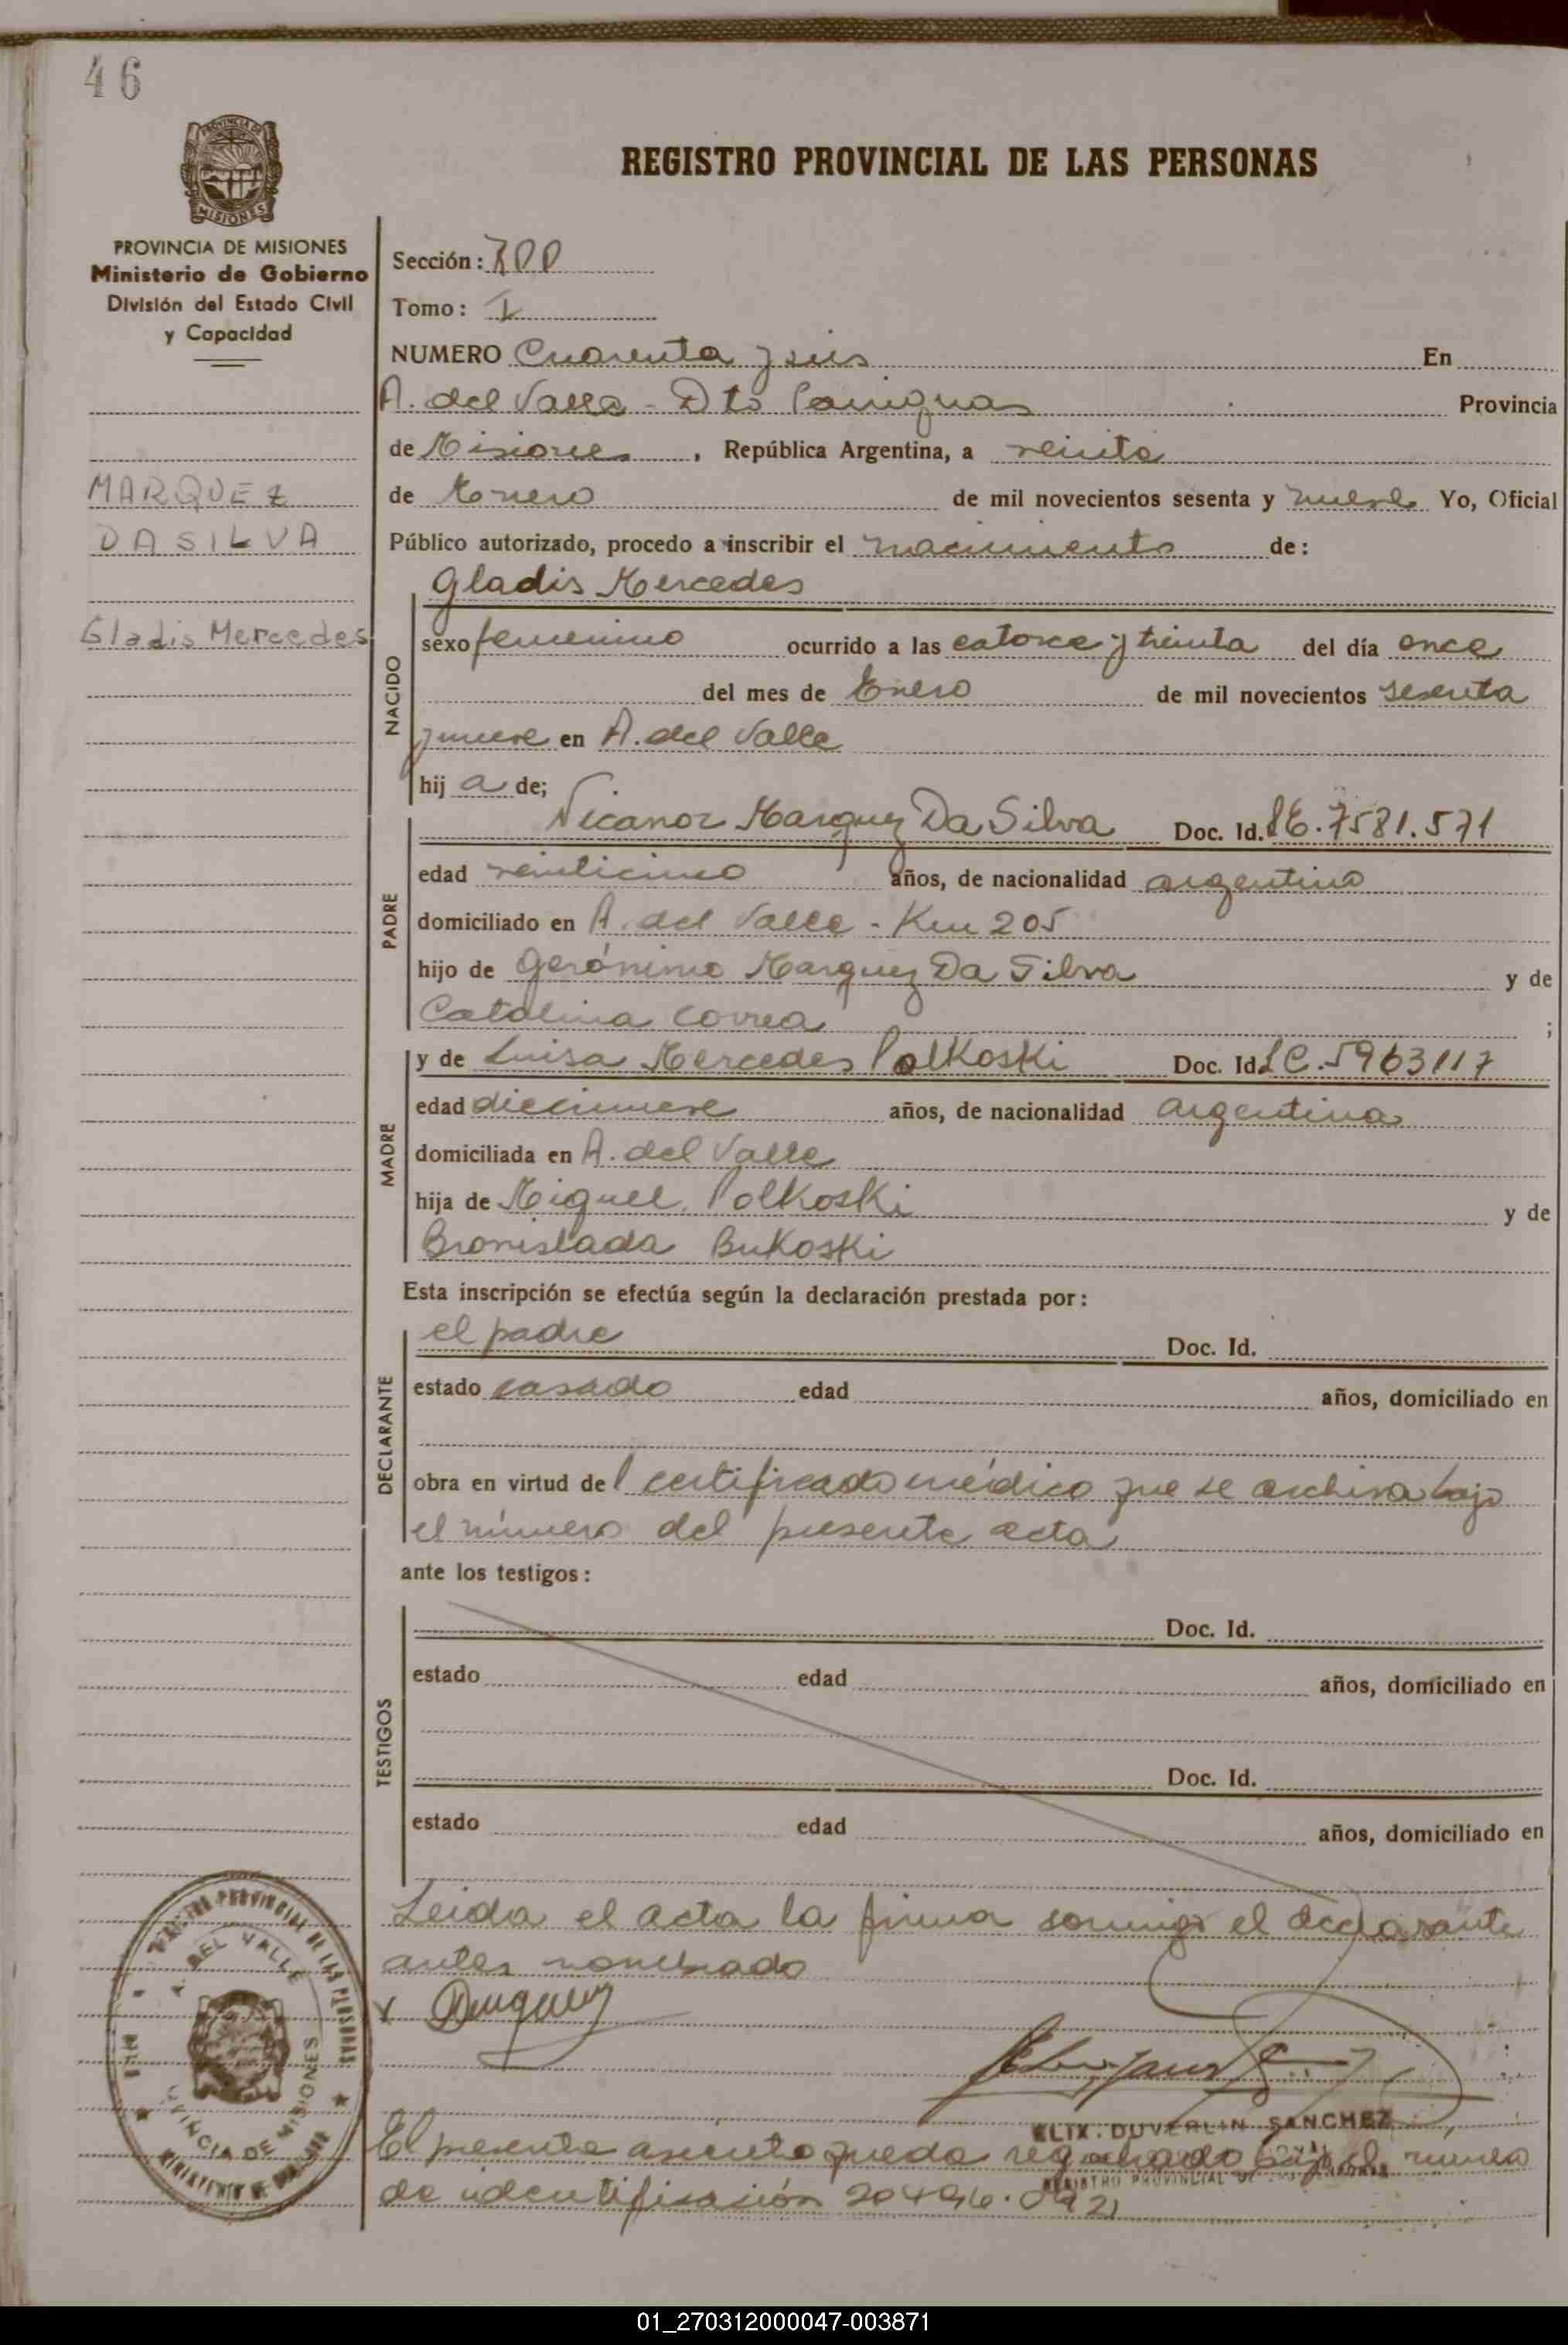 46
MISIONES
PROVINCIA DE MISIONES
Ministerio de Gobierno
División del Estado Civil
y Capacidad
REGISTRO PROVINCIAL DE LAS PERSONAS
Sección:
Tomo: I
NUMERO Cuarenta y seis En
A. del Valle - Dto Cainguas Provincia
de Misiones, República Argentina, a veinte
de Enero de mil novecientos sesenta y nueve Yo, Oficial
Público autorizado, procedo a inscribir el nacimiento de:
MARQUEZ
DASILVA
Gladis Mercedes
NACIDO
Gladis Mercedes
sexo femenino ocurrido a las catorce y treinta del día once
del mes de Enero de mil novecientos sesenta
y nueve en A. del Valle
hij a de;
PADRE
Nicanor Marquez Da Silva Doc. Id. LE. 7581.571
edad veinticinco años, de nacionalidad argentino
domiciliado en A. del Valle - Km 205
hijo de Gerónimo Marquez Da Silva y de
Catalina Correa ;
MADRE
y de Luisa Mercedes Polkoski Doc. Id. LC. 5963117
edad diecinueve años, de nacionalidad argentina
domiciliada en A. del Valle
hija de Miguel Polkoski y de
Bronislada Bukoski
Esta inscripción se efectúa según la declaración prestada por:
DECLARANTE
el padre Doc. Id.
estado casado edad años, domiciliado en
obra en virtud del certificado médico que se archiva bajo
el número del presente acta
ante los testigos:
TESTIGOS
Doc. Id.
estado edad años, domiciliado en
Doc. Id.
estado edad años, domiciliado en
Leida el acta la firma conmigo el declarante
antes nombrado
REGISTRO PROVINCIAL DE LAS PERSONAS
A. DEL VALLE
PROVINCIA DE MISIONES
DUVERLIN SANCHEZ
REGISTRO PROVINCIAL DE
El presente asiento queda registrado bajo el numero
de identificación
01_270312000047-003871